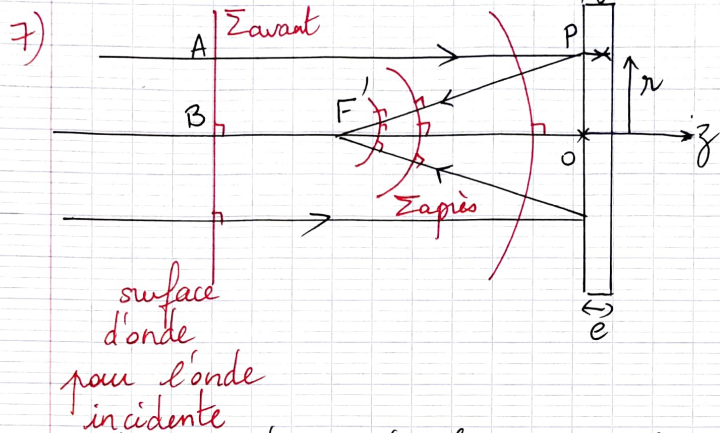 7)
Σavant
A
P
r
B
F'
z
O
Σaprès
surface
d'onde
pour l'onde
incidente
e